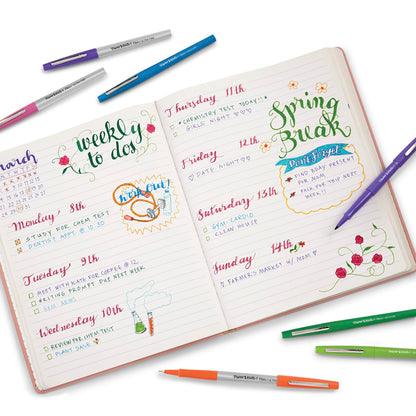 March
weekly
to dos
Monday 8th
STUDY FOR CHEM TEST
DENTIST APPT. @ 10:30
work out!
Tuesday 9th
MEET WITH KATE FOR COFFEE @ 12
WRITING PROMPT DUE NEXT WEEK
Wednesday 10th
REVIEW FOR CHEM TEST
PLANT SALE
Thursday 11th
CHEMISTRY TEST TODAY!!
GIRLS NIGHT
Friday 12th
DATE NIGHT
Saturday 13th
GYM: CARDIO
CLEAN HOUSE
Sunday 14th
FARMER'S MARKET W/ MOM
Spring
Break
Don't Forget
FIND BDAY PRESENT
FOR MOM
PACK FOR TRIP NEXT
WEEK!!
Paper Mate
Paper Mate
Paper Mate
Paper Mate
Paper Mate
Paper Mate